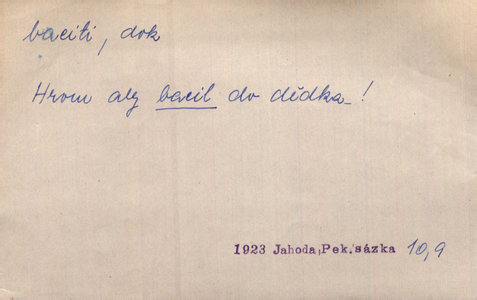 baciti, dok
Hrom aby bacil do dědka!
1923 Jahoda,Pek.sázka 10,9